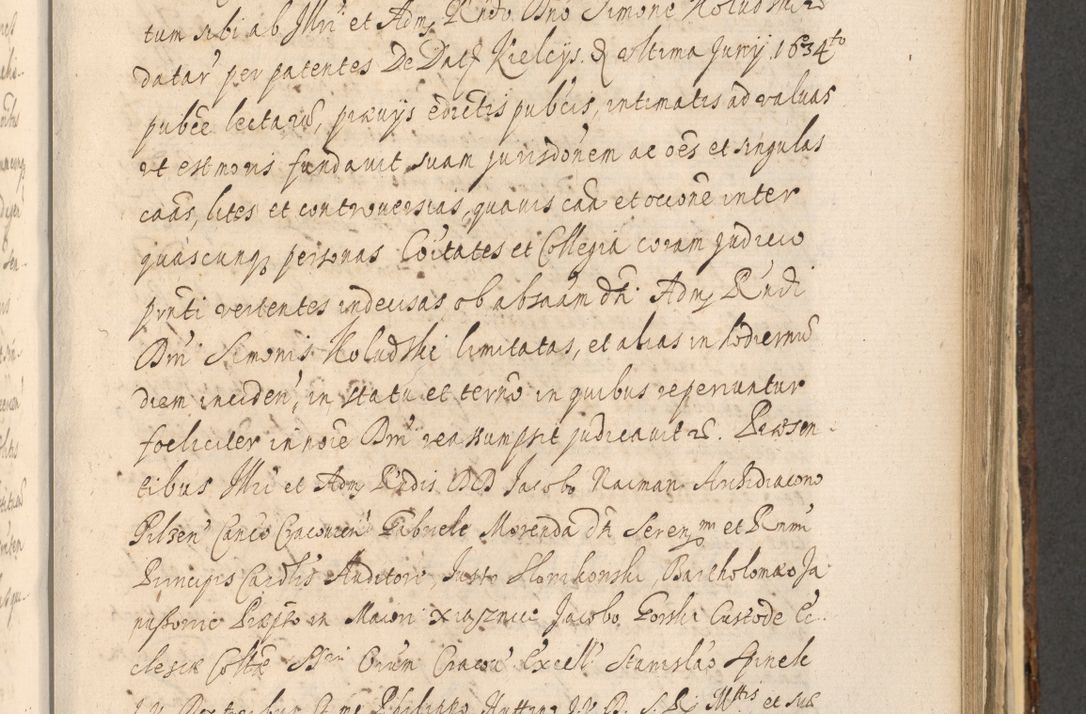 tum sibi ab Illri et Adm Rndo Dno Simone Koludski
datar per patentes De Datt Kielcijs d ultima Junij 1634to
pubce lectarū, praevijs edictis pubcis, intimatis ad valvas
ut est moris fundavit suam jurisdonem ac oēs et singulas
caās, lites et controversias, quavis caā et occōne inter
quascunq personas Coitates et Collegia coram judicio
pnti vertentes indecisas ob absaām dti Adm Rndi
Dni Simonis Koludski limitatas, et alias in hodiernū
diem inciden, in statu et termo in quibus reperiuntur
foeliciter in noīe Dni reassumpsit judicavit Praesen
tibus Illri et Adm Rndis DD Jacobo Naiman Archidiacono
Pilsen Canco Cracovien Gabriele Morenda dti Seren et Rnmi
Principis Cardlis Auditore, Justo Slowikowski, Bartholomaeo Ja
nussowic Praepto in Maiori Xiąsznice Jacobo Gorski Custode Ec
clesiae Colltae SSm Omium Cracov Excell Stanislao
Philippo et